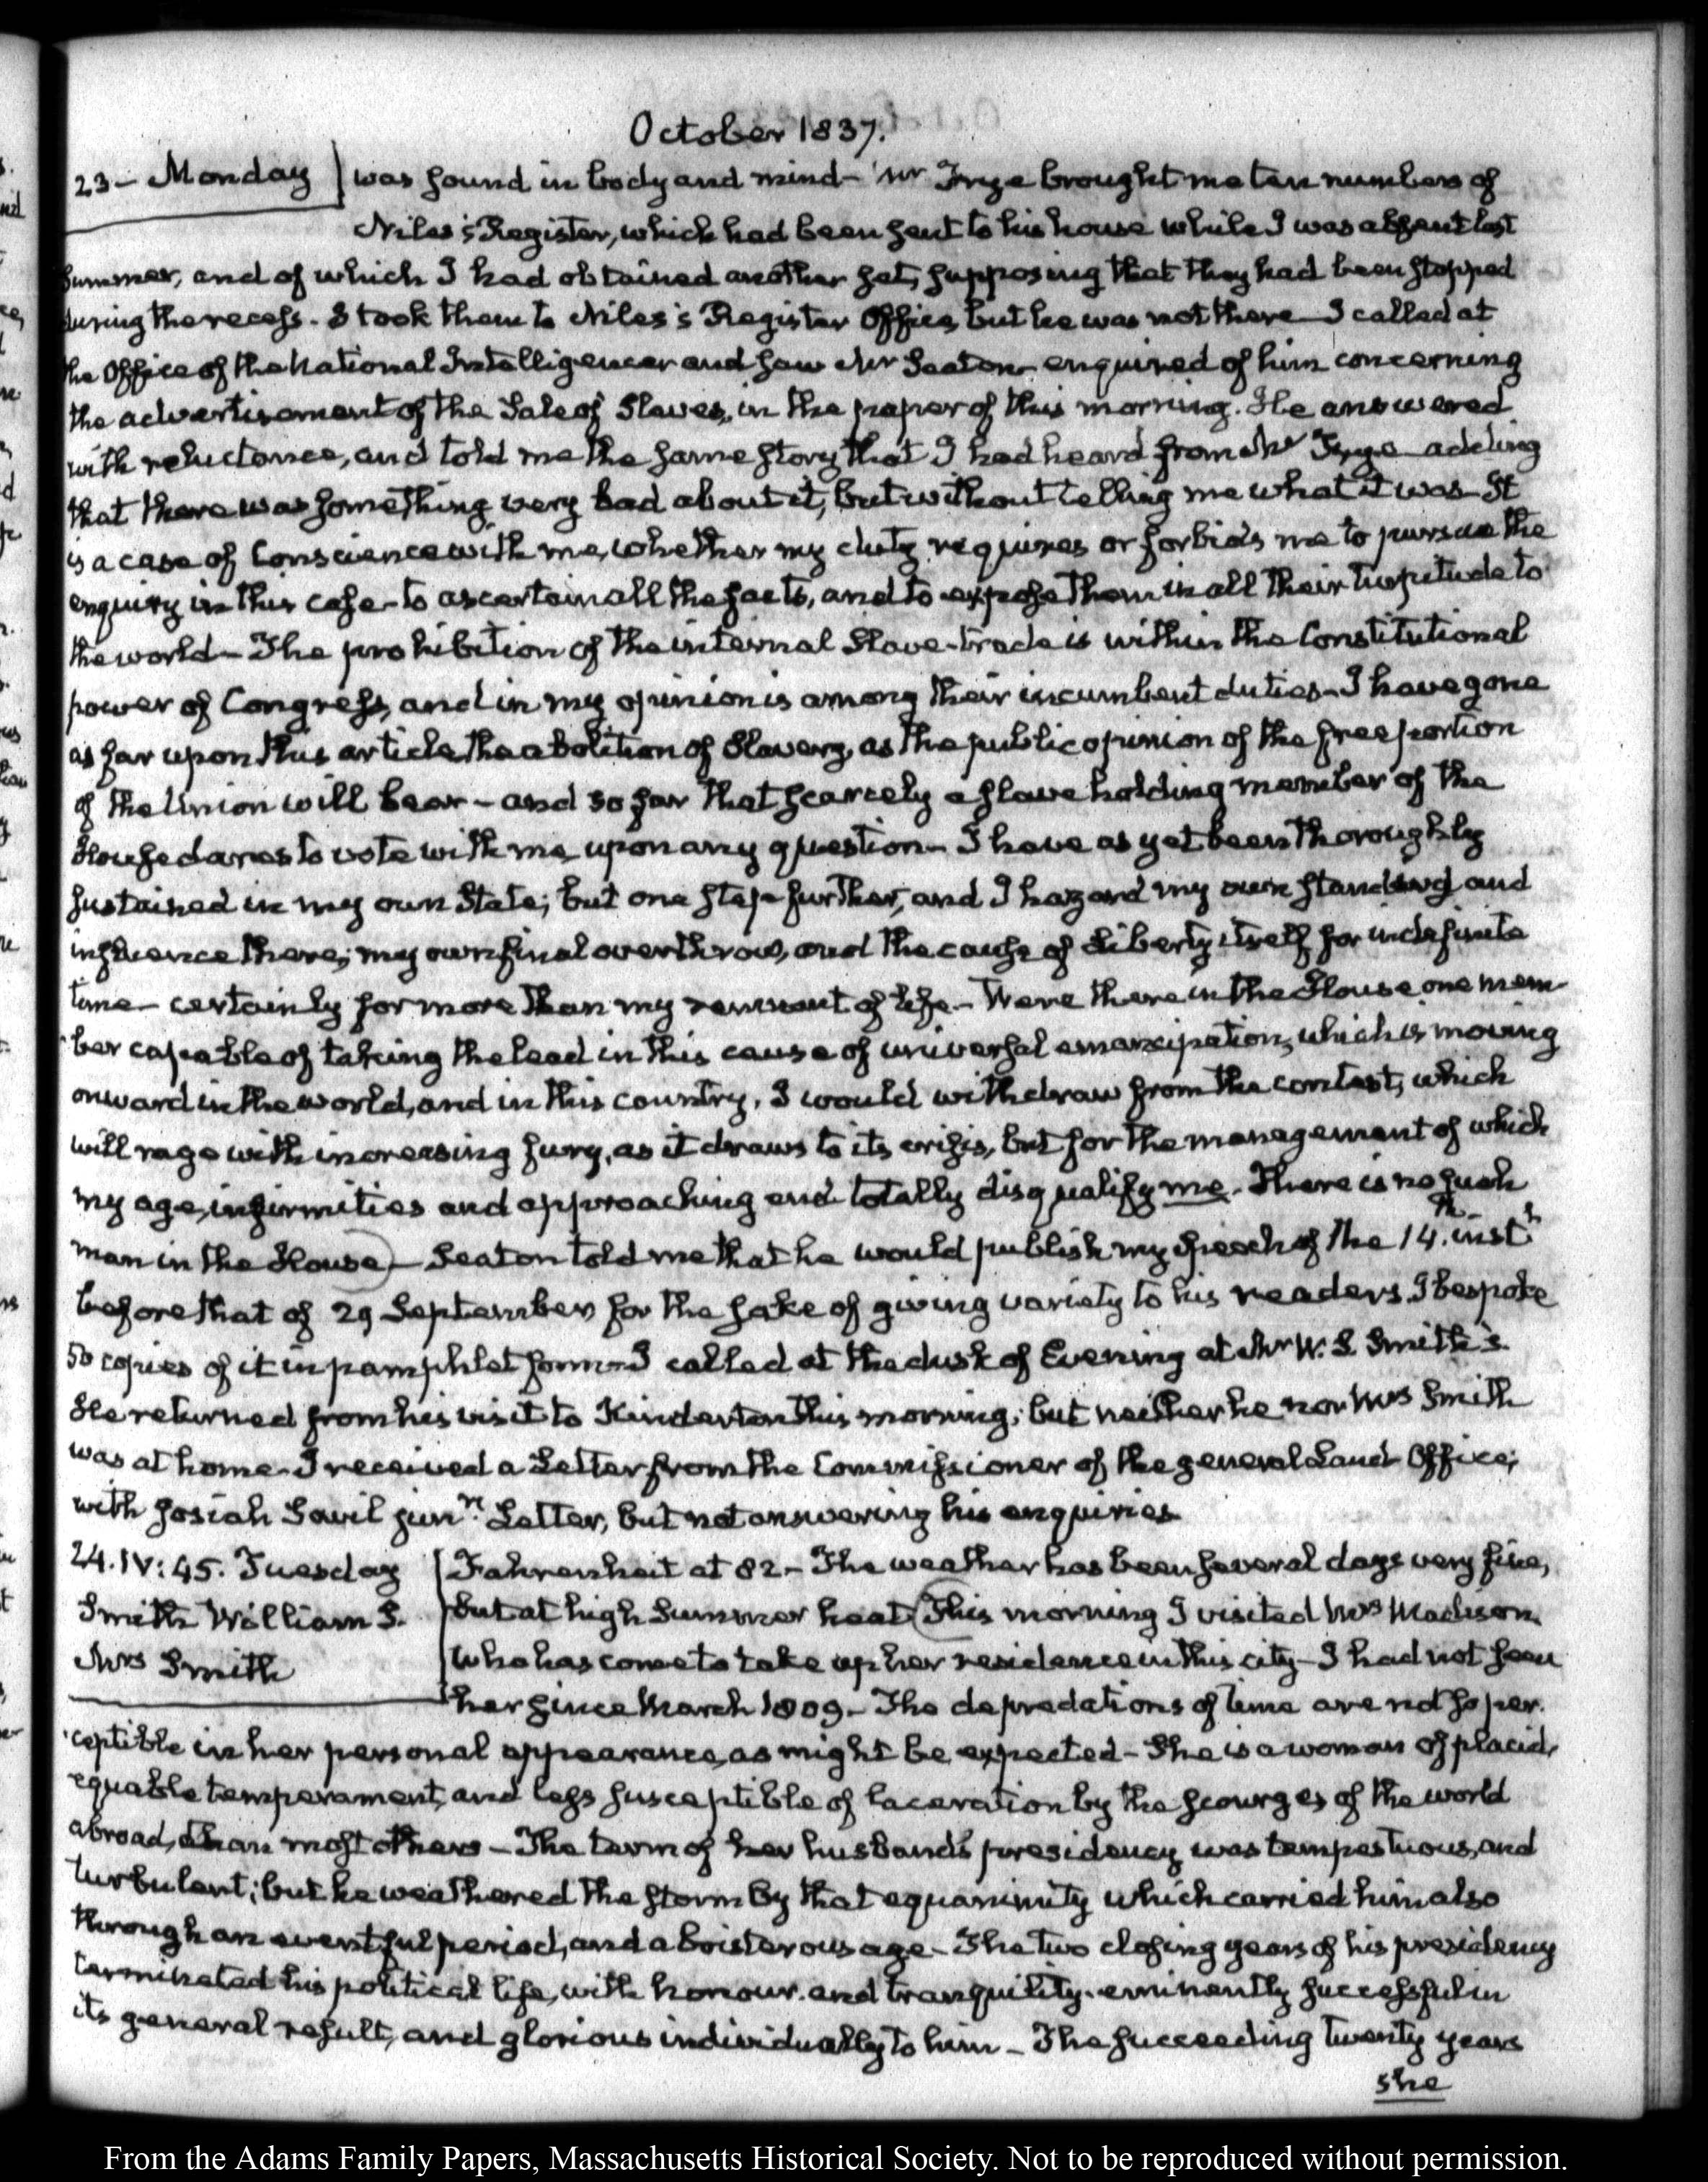 October 1837.
23 – Monday
was sound in body and mind – Mr Frye brought me ten numbers of
Niles's Register, which had been sent to his house while I was absent last
summer, and of which I had obtained another set, supposing that they had been stopped
during the recess. I took them to Niles's Register Office, but he was not there – I called at
the Office of the National Intelligencer and saw Mr Seaton – enquired of him concerning
the advertisement of the Sale of Slaves, in the paper of this morning. He answered
with reluctance, and told me the same story that I had heard from Mr Frye – adding
that there was something very bad about it, but without telling me what it was – It
is a case of Conscience with me, whether my duty requires or forbids me to pursue the
enquiry in this case – to ascertain all the facts, and to expose them in all their turpitude to
the world – The prohibition of the internal Slave-trade is within the Constitutional
power of Congress, and in my opinion is among their incumbent duties – I have gone
as far upon this article the abolition of Slavery, as the public opinion of the free portion
of the Union will bear – and so far that scarcely a slave holding member of the
House dares to vote with me upon any question – I have as yet been thoroughly
sustained in my own State; but one step further, and I hazard my own standing and
influence there; my own final overthrow, and the cause of Liberty itself for indefinite
time – certainly for more than my remnant of life – Were there in the House one mem-
ber capable of taking the lead in this cause of universal emancipation, which is moving
onward in the world, and in this country, I would withdraw from the contest, which
will rage with increasing fury, as it draws to its crisis, but for the management of which
my age, infirmities and approaching end totally disqualify me. There is no such
man in the House) – Seaton told me that he would publish my speech of the 14th. instt
before that of 29 September, for the sake of giving variety to his readers. I bespoke
50 copies of it in pamphlet form – I called at the dusk of Evening at Mr W. S. Smith's.
He returned from his visit to this morning; but neither he nor Mrs Smith
was at home – I received a Letter from the Commissioner of the general Land Office;
with Josiah Savil junr. Letter, but not answering his enquiries
24. IV: 45. Tuesday
Smith William S.
Mrs Smith
Fahrenheit at 82 – The weather has been several days very fine,
but at high Summer heat (This morning I visited Mrs Madison,
who has come to take up her residence in this city – I had not seen
her since March 1809 – The depredations of time are not so per-
ceptible in her personal appearance, as might be expected – She is a woman of placid,
equable temperament, and less susceptible of laceration by the scourges of the world
abroad, than most others – The term of her husband's presidency was tempestuous, and
turbulent; but he weathered the storm by that equanimity which carried him also
through an eventful period, and a boisterous age – The two closing years of his presidency
terminated his political life, with honour and tranquility – eminently successful in
its general result, and glorious individually to him – The succeeding twenty years
she
From the Adams Family Papers, Massachusetts Historical Society. Not to be reproduced without permission.